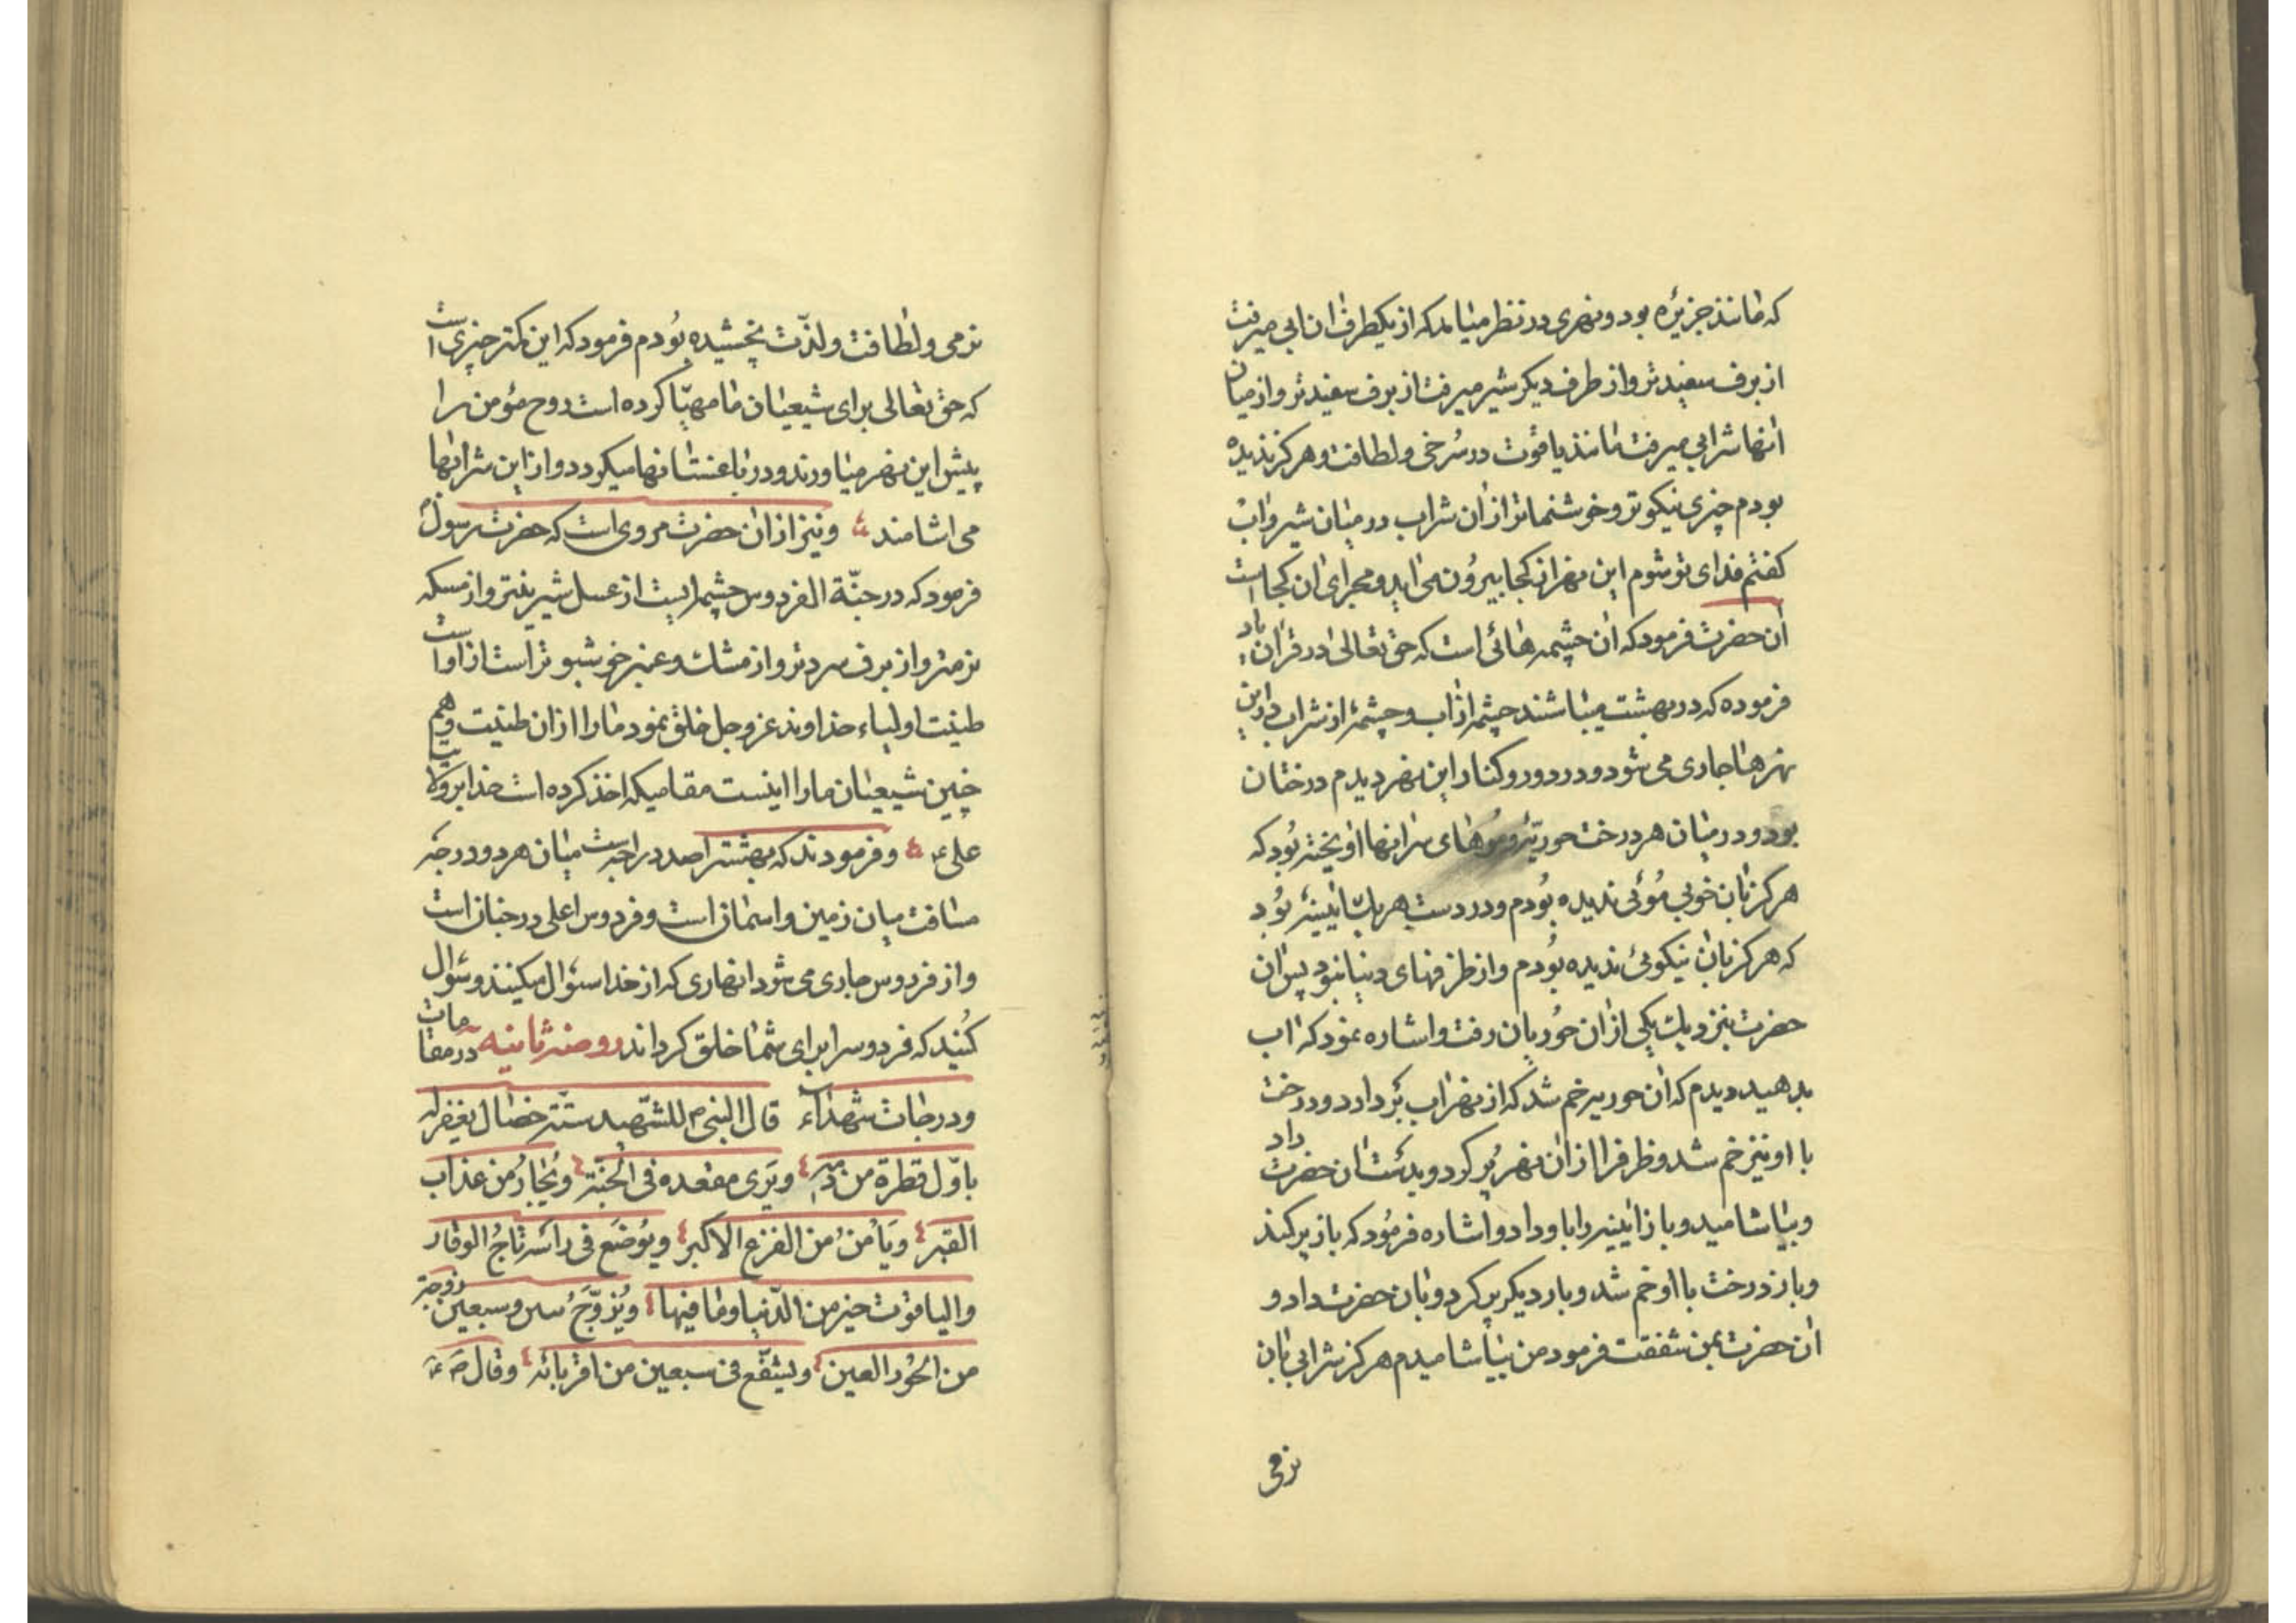 که مانند جزیرهٔ بود و نهری در نظر میامد که از یکطرف ان ابی میرفت
از برف سفیدتر و از طرف دیگر شیر میرفت از برف سفیدتر و از میان
انها شرابی میرفت مانند یاقوت در سُرخی و لطافت و هرگز ندیده
بودم چیزی نیکوتر و خوشنماتر از ان شراب در میان شیر و اب
گفتم فدای تو شوم این نهر از کجا بیرون می اید و مجرای ان کجا است
ان حضرت فرمود که ان چشمه هائی است که حق تعالی در قران یاد
فرموده که در بهشت میباشند چشمهٔ از اب و چشمهٔ از شراب در این
نهرها جاری می شود و در دور و کنار این نهر دیدم درختان
بود و در میان هر درخت حوریهٔ و موهای سر انها اویخته بُود که
هرگز بان خوبی مُوئی ندیده بُودم و در دست هر یک ایینهٔ بُود
که هرگز بان نیکوئی ندیده بُودم و از ظرفهای دنیا نبود پس ان
حضرت بنزدیک یکی از ان حُوریان رفت و اشاره نمود که اب
بدهید دیدم که ان حوریه خم شد که از نهر اب بَردارد و درخت
با او نیز خم شد و ظرف را از ان نهر پُر کرد و بدست ان حضرت داد
و بیاشامید و باز ایینه را باو داد و اشاره فرمُود که باز پر کند
و باز درخت با او خم شد و بار دیگر پر کرد و بان حضرت داد و
ان حضرت بمن شفقت فرمود من بیاشامیدم هرگز شرابی بان
نرمی
نرمی و لطافت و لذّت نچشیده بُودم فرمود که این کمتر چیزی است
که حق تعالی برای شیعیان ما مهیّا کرده است روح مؤمن را
پیش این نهر میاورند و در باغستانها میگردد و از این شرابها
می اشامند و نیز از ان حضرت مروی است که حضرت رسول
فرمود که در جنّة الفردوس چشمه ایست از عسل شیرینتر و از مسکه
نرمتر و از برف سردتر و از مشک و عنبر خوشبوتر است از او است
طینت اولیاء خداوند عز و جل خلق نمود ما را از ان طینت و هم
چنین شیعیان ما را اینست مقامیکه اخذ کرده است خدا بر ولایت
علی ع و فرمودند که بهشت را صد درجه است میان هر دو درجه
مسافت میان زمین و اسمان است و فردوس اعلی در جنان است
و از فردوس جاری می شود انهاری که از خدا سئوال میکنند و سئوال
کُنید که فردوس را برای شما خلق کرداند روضه ثانیه در مقامات
و درجات شهداء قال النبی ص للشّهید ستّة خصال یغفر له
باوّل قطرة من دمه و یَری مقعده فی الجنّة و یُجارُ من عذاب
القبر و یَأمنُ من الفزع الاکبر و یوُضَع فی راسَه تاجُ الوقار
و الیاقوت خیر من الدّنیا و ما فیها و یُزوّجُ و سبعین زوجة
من الحُور العین و یشفّع فی سبعین من اقربائه و قال ص ع